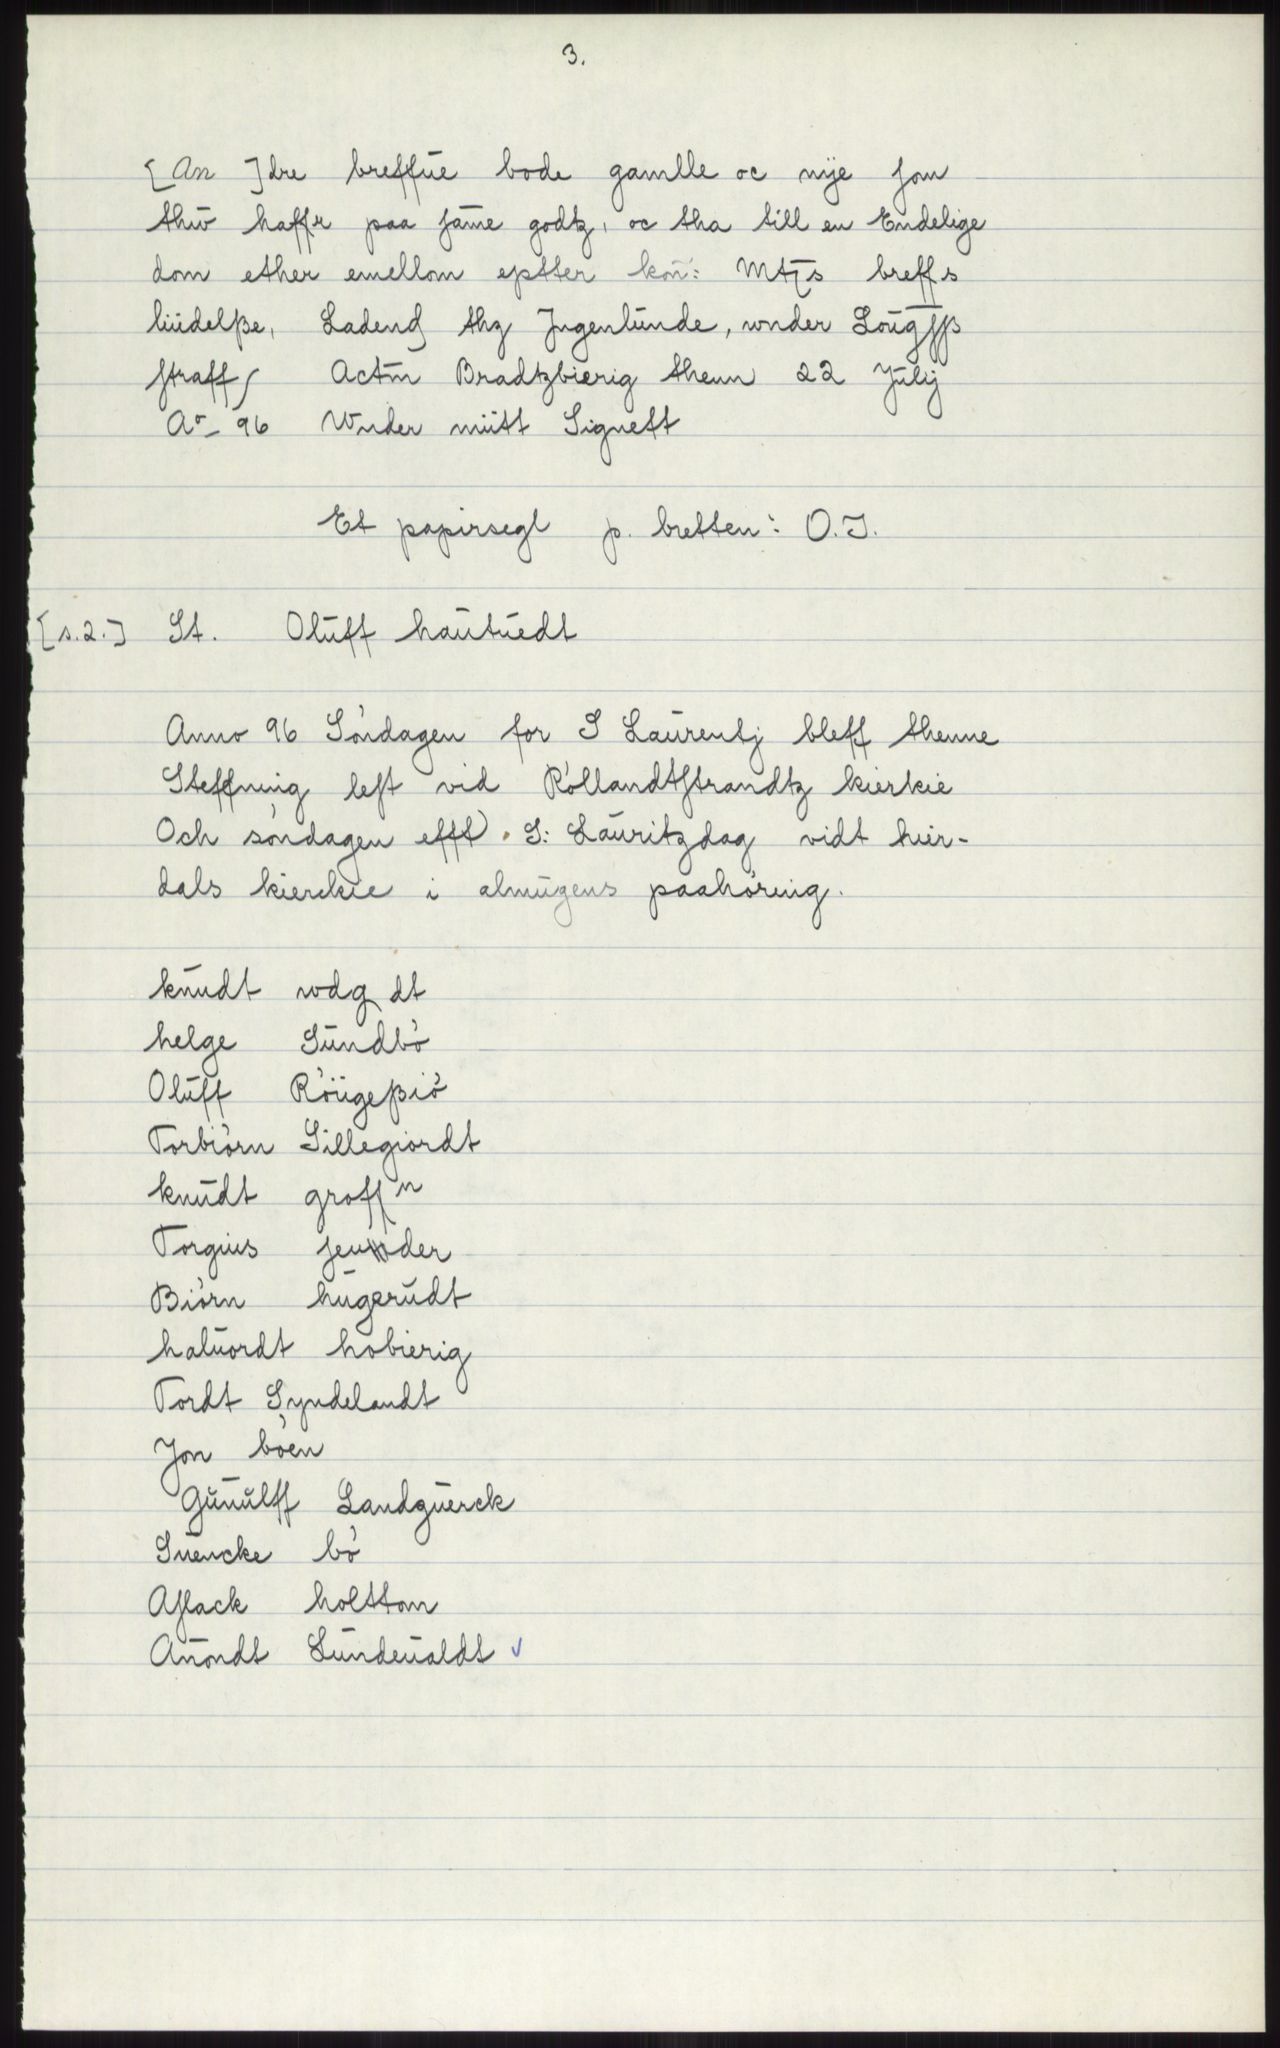 3.
[An ]dre breffue bode gamlle oc nÿe som
thw haffr paa same godtz, oc tha till en Endelige
dom ether emellom eptter kon: Mtts breffs
liudelße, Ladend thz Jngenlunde, wnder Lougsß
straff Actm Bradtzbierig thenn 22 Julij
Ao- 96 Wnder mitt Signett
Et papirsegl p. bretten: O.I.
[s.2.] St. Oluff hautuedt
Anno 96 Sóndagen for S Laurentj bleff thenne
Steffning lest vid Róllandtstrandtz kierkie
Och sóndagen efft S: Lauritzdag vidt hier-
dals kierckie i almugens paahóring.
knudt wdg dt
helge Sundbó
Oluff Róugeßió
Torbiórn Sillegiordt
knudt groffn
Torgius
Biórn hugerudt
haluordt hobierig
Tordt Syndelandt
Jon bóen
Gunulff Landguerck
Suencke bó
Aslack holttom
Auondt Sundeualdt ✓